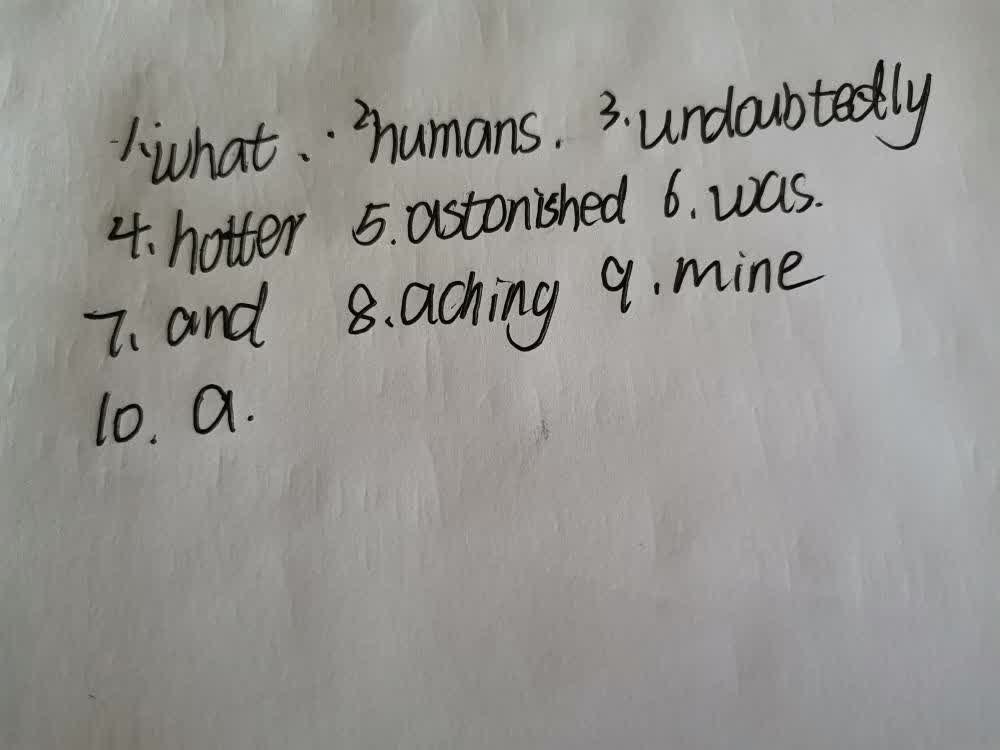 1. what. 2 humans. 3. undoubtedly
4. hotter 5. astonished 6. was.
7. and 8. aching 9. mine
10. a.